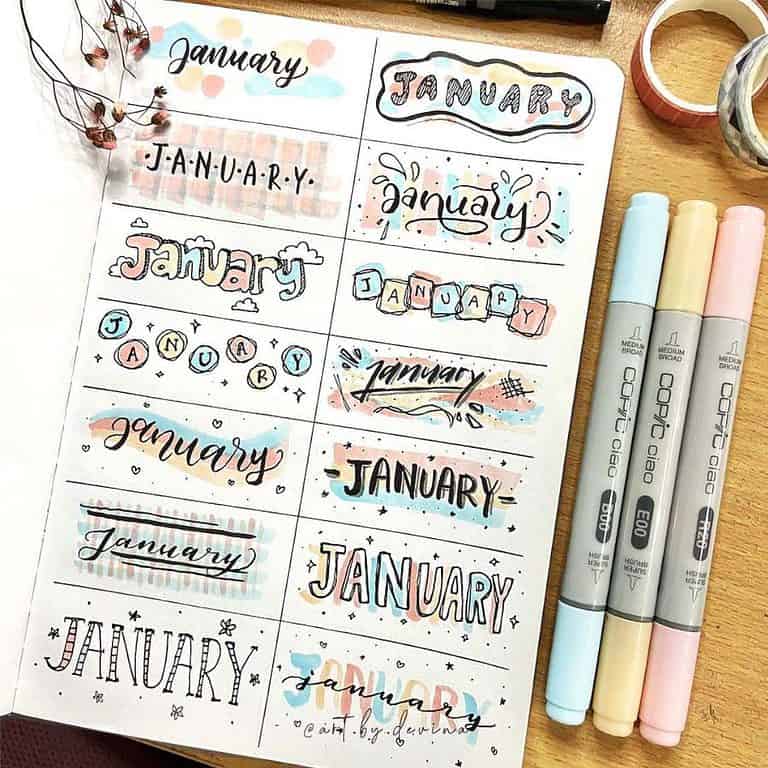 january
JANUARY
·J·A·N·U·A·R·Y·
january
january
JANUARY
JANUARY
january
january
-JANUARY-
January
JANUARY
JANUARY
JANUARY
january
@art.by.devina
MEDIUM
BROAD
COPIC ciao
B00
SUPER
BRUSH
MEDIUM
BROAD
COPIC ciao
E00
SUPER
BRUSH
MEDIUM
BROAD
COPIC ciao
R20
SUPER
BRUSH